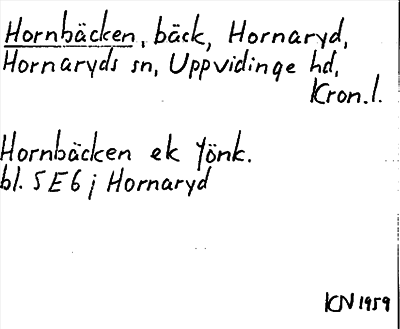 Hornbäcken, bäck, Hornaryd,
Hornaryds sn, Uppvidinge hd,
Kron.l.
Hornbäcken ek Jönk.
bl. 5E6j Hornaryd
KN 1959